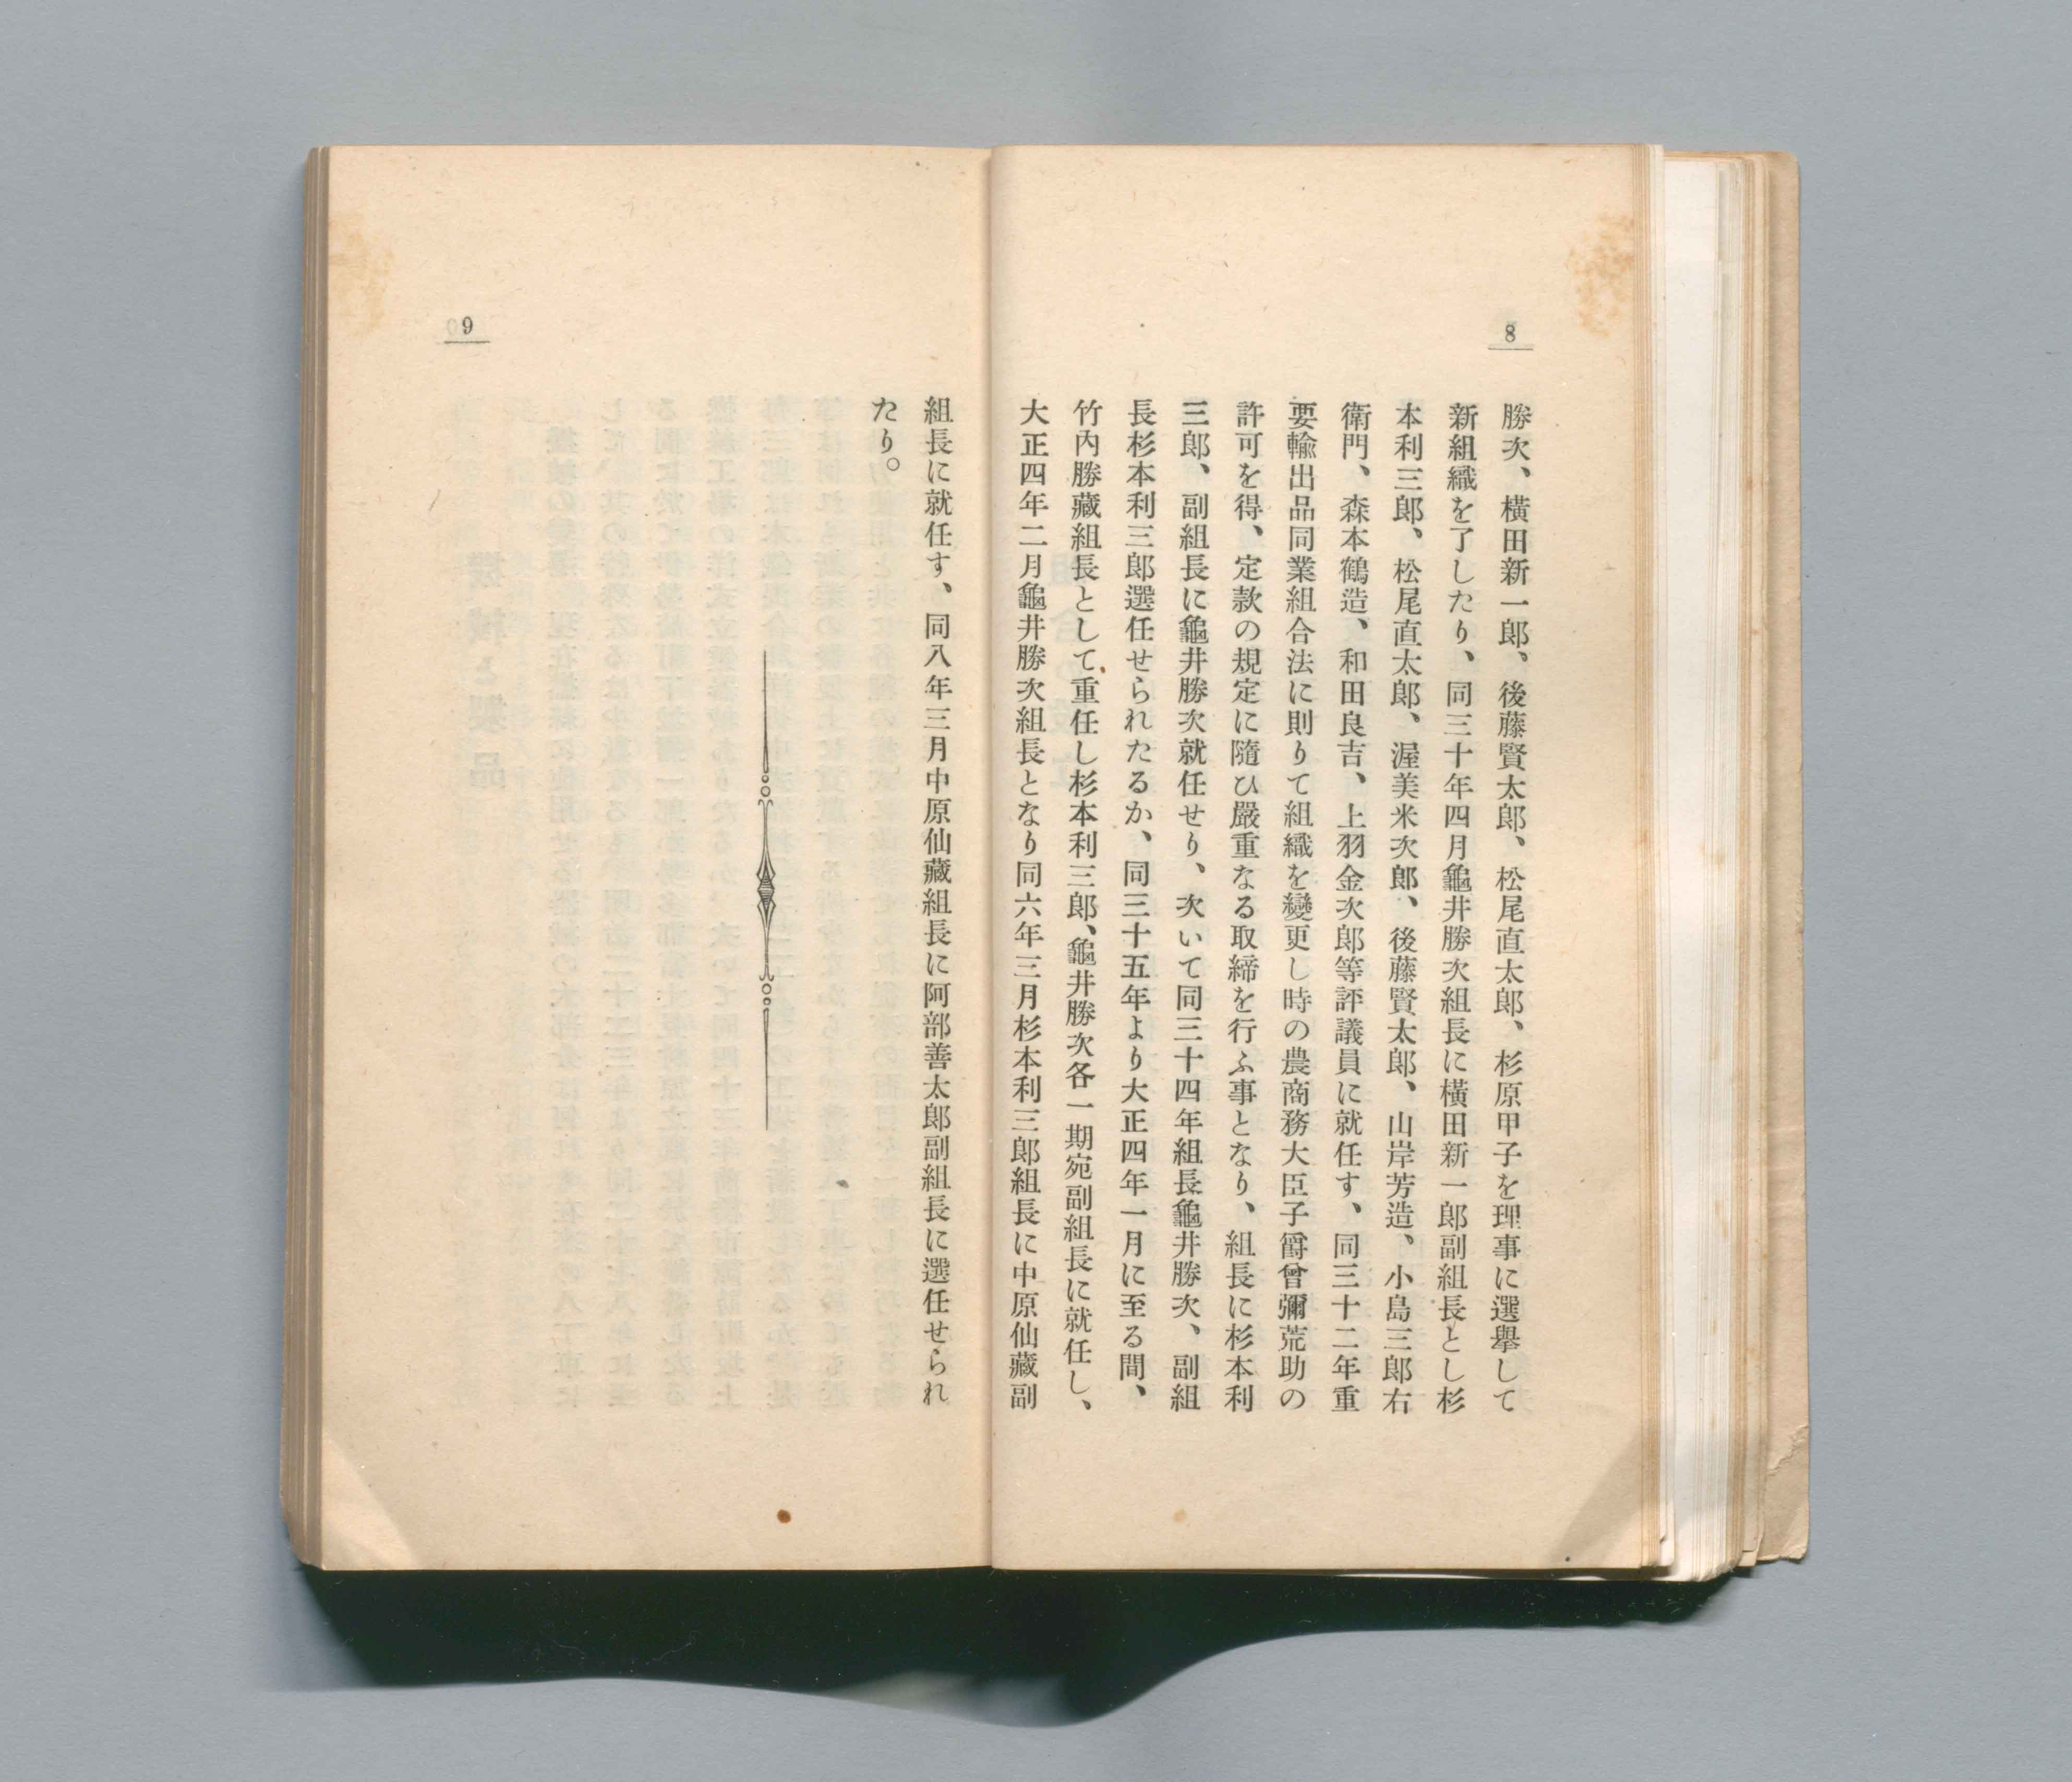 8
勝次、橫田新一郎、後藤賢太郎、松尾直太郎、杉原甲子を理事に選擧して
新組織を了したり、同三十年四月龜井勝次組長に橫田新一郎副組長とし杉
本利三郎、松尾直太郎、渥美米次郎、後藤賢太郎、山岸芳造、小島三郎右
衞門、森本鶴造、和田良吉、上羽金次郎等評議員に就任す、同三十二年重
要輸出品同業組合法に則りて組織を變更し時の農商務大臣子爵曾彌荒助の
許可を得、定款の規定に隨ひ嚴重なる取締を行ふ事となり、組長に杉本利
三郎、副組長に龜井勝次就任せり、次いて同三十四年組長龜井勝次、副組
長杉本利三郎選任せられたるか、同三十五年より大正四年一月に至る間、
竹內勝藏組長として重任し杉本利三郎、龜井勝次各一期宛副組長に就任し、
大正四年二月龜井勝次組長となり同六年三月杉本利三郎組長に中原仙藏副
9
組長に就任す、同八年三月中原仙藏組長に阿部善太郎副組長に選任せられ
たり。